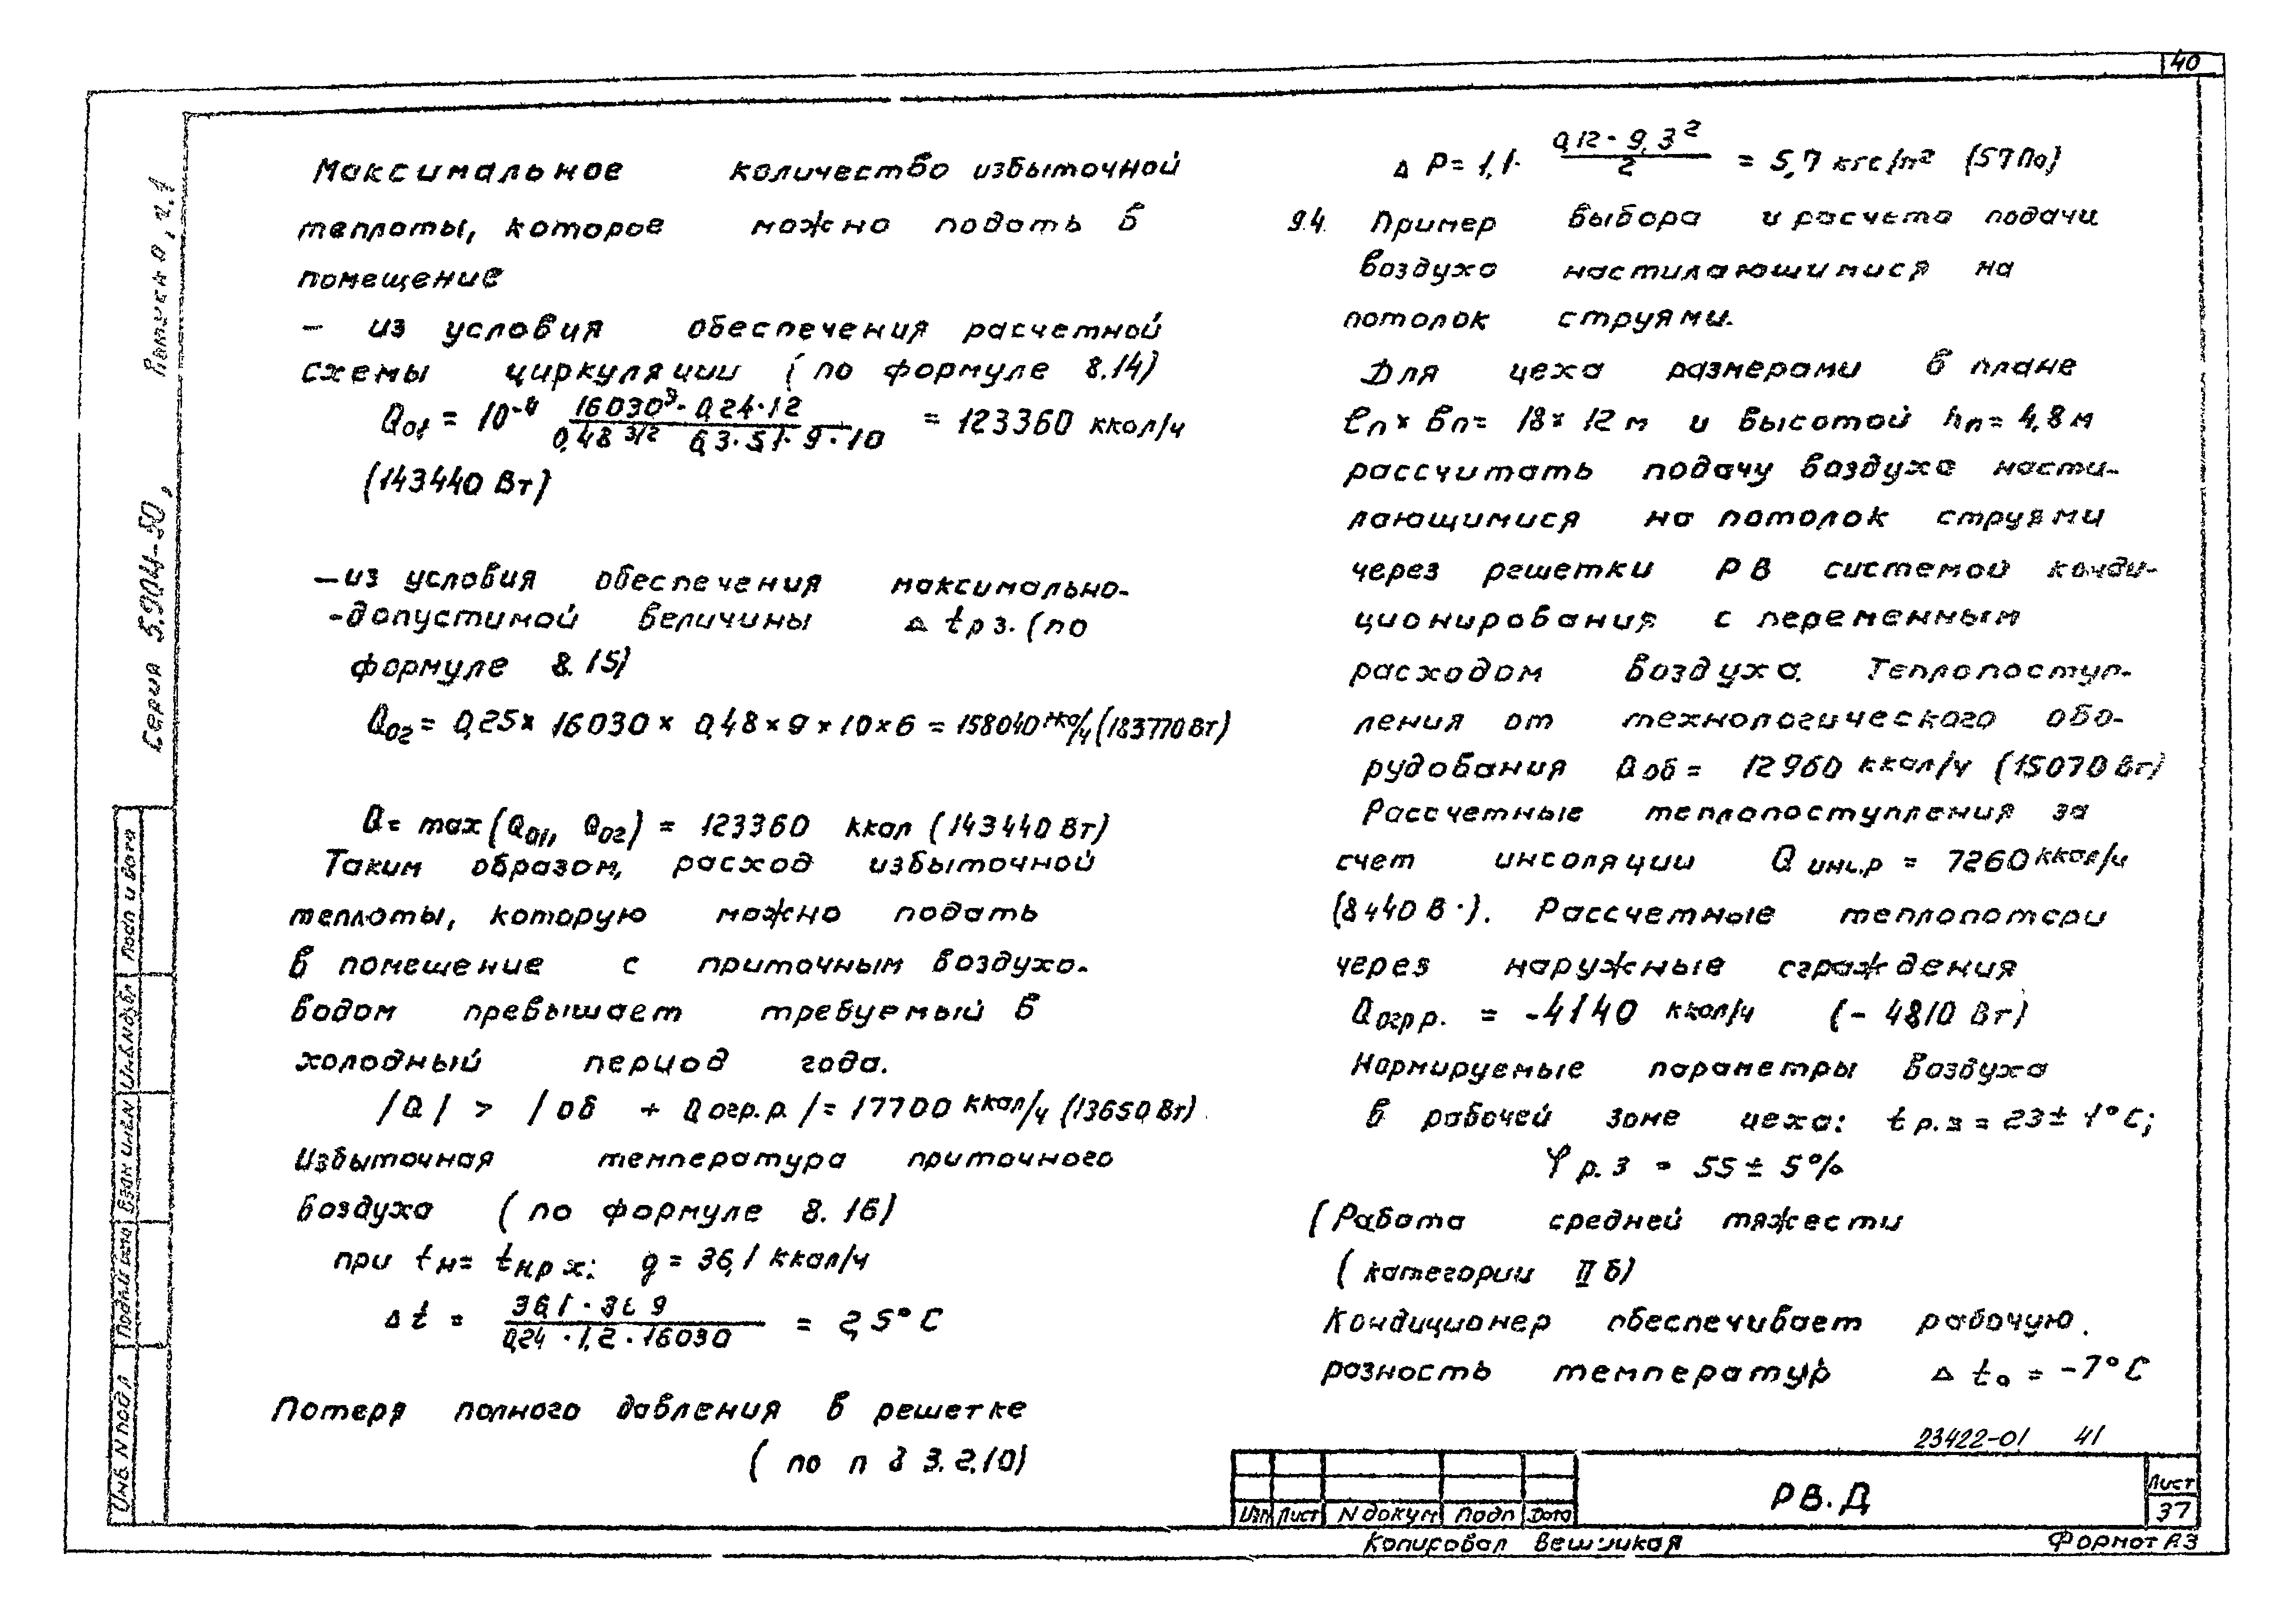 40
Максимальное количество избыточной
теплоты, которое можно подать в
помещение
– из условия обеспечения расчетной
схемы циркуляции (по формуле 8.14)
Q01 = 10-4 16030³·0,24·12 / 0,48 3/2 6,3·5,1·9·10 = 123360 ккал/ч
(143440 Вт)
– из условия обеспечения максимально-
-допустимой величины Δ tр з. (по
формуле 8.15)
Q02 = 0,25× 16030 × 0,48×9×10×6 = 158040 ккал/ч (183770 Вт)
Q = max (Q01, Q02) = 123360 ккал (143440 Вт)
Таким образом, расход избыточной
теплоты, которую можно подать
в помещение с приточным воздухо-
водом превышает требуемый в
холодный период года.
/Q/ > /об + Q огр.р./ = 17700 ккал/ч (13650 Вт)
Избыточная температура приточного
воздуха (по формуле 8.16)
при tн= tн.р х: g = 36,1 ккал/ч
Δ t = / 0,24 · 1,2 · 16030 = 2,5°С
Потеря полного давления в решетке
(по п 8 3.2.10)
Δ P = 1,1· 0,12·9,3² / 2 = 5,7 кгс/м² (57 Па)
9.4. Пример выбора и расчета подачи
воздуха настилающимися на
потолок струями.
Для цеха размерами в плане
ℓп× вп= 18× 12 м и высотой hп= 4,8 м
рассчитать подачу воздуха насти-
лающимися на потолок струями
через решетки РВ системой конди-
ционирования с переменным
расходом воздуха. Теплопоступ-
ления от технологического обо-
рудования Qоб = 12960 ккал/ч (15070 Вт)
Рассчетные теплопоступления за
счет инсоляции Q инс.р = 7260 ккал/ч
(8440 В·). Рассчетные теплопотери
через наружные ограждения
Qогр р. = -4140 ккал/ч (- 4810 Вт)
Нормируемые параметры воздуха
в рабочей зоне цеха: t р.з = 23± 1°С;
φ р.з = 55 ± 5%
(Работа средней тяжести
(категории II б)
Кондиционер обеспечивает рабочую
разность температур Δ to = -7°С
23422-01 41
Изм Лист N докум Подп Дата
РВ.Д
Лист
37
Копировал
Формат А3
Серия 5.904-50,
Выпуск 0, ч.1
Инв. N подл
Подпись и дата
Взам инв N
Инв.N дубл
Подп и дата